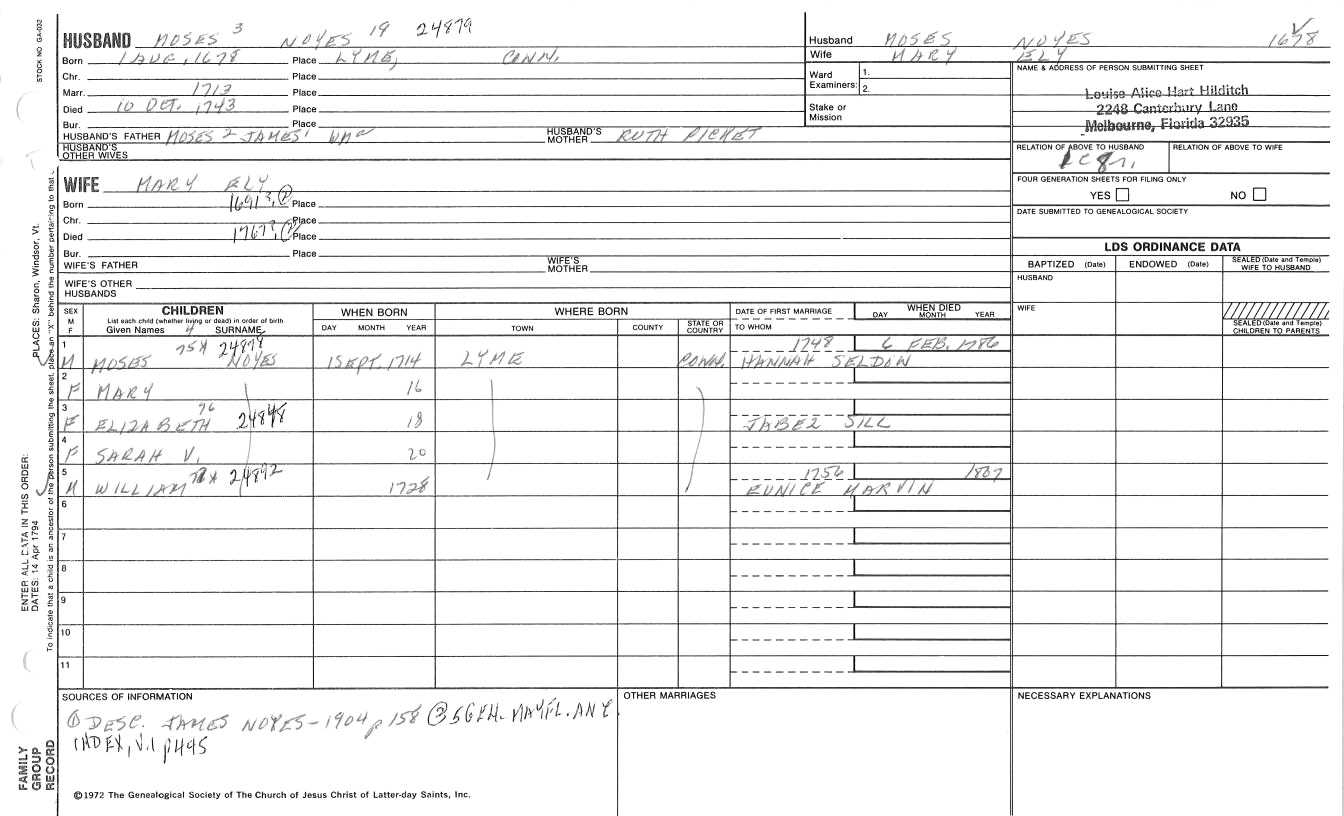 STOCK NO GA-032
HUSBAND MOSES 3 NOYES 19 24879
Born 1 AUG, 1678 Place LYME, CONN.
Chr. Place
Marr. 1713 Place
Died 10 OCT. 1743 Place
Bur. Place
HUSBAND'S FATHER MOSES 2 JAMES' WM a HUSBAND'S MOTHER RUTH PICKET
HUSBAND'S OTHER WIVES
Husband MOSES NOYES 1678
Wife MARY ELY
Ward Examiners: 1.
2.
Stake or Mission
NAME & ADDRESS OF PERSON SUBMITTING SHEET
Louise Alice Hart Hilditch
2248 Canterbury Lane
Melbourne, Florida 32935
RELATION OF ABOVE TO HUSBAND RELATION OF ABOVE TO WIFE
FOUR GENERATION SHEETS FOR FILING ONLY
YES NO
DATE SUBMITTED TO GENEALOGICAL SOCIETY
WIFE MARY ELY
Born 1691?, ② Place
Chr. Place
Died 1767?, ② Place
Bur. Place
WIFE'S FATHER WIFE'S MOTHER
WIFE'S OTHER HUSBANDS
LDS ORDINANCE DATA
BAPTIZED (Date) ENDOWED (Date) SEALED (Date and Temple) WIFE TO HUSBAND
HUSBAND
WIFE
SEALED (Date and Temple) CHILDREN TO PARENTS
SEX M F
CHILDREN
List each child (whether living or dead) in order of birth
Given Names 4 SURNAME
WHEN BORN
DAY MONTH YEAR
WHERE BORN
TOWN COUNTY STATE OR COUNTRY
DATE OF FIRST MARRIAGE
TO WHOM
WHEN DIED
DAY MONTH YEAR
1 75X 24878 1748 6 FEB. 1786
M MOSES NOYES 1 SEPT. 1714 LYME CONN. HANNAH SELDON
2
F MARY 16
3 76
F ELIZABETH 24848 18 JABEZ SILL
4
F SARAH V. 20
5 X 24892 1756 1807
M WILLIAM 1728 EUNICE MARVIN
6
7
8
9
10
11
SOURCES OF INFORMATION
① DESC. JAMES NOYES-1904 p 158 ② 5 GEN. MAYFL. ANC.
INDEX, V.1 p445
OTHER MARRIAGES
NECESSARY EXPLANATIONS
©1972 The Genealogical Society of The Church of Jesus Christ of Latter-day Saints, Inc.
ENTER ALL DATA IN THIS ORDER:
DATES: 14 Apr 1794
PLACES: Sharon, Windsor, Vt.
To indicate that a child is an ancestor of the person submitting the sheet, place an "X" behind the number pertaining to that
FAMILY
GROUP
RECORD